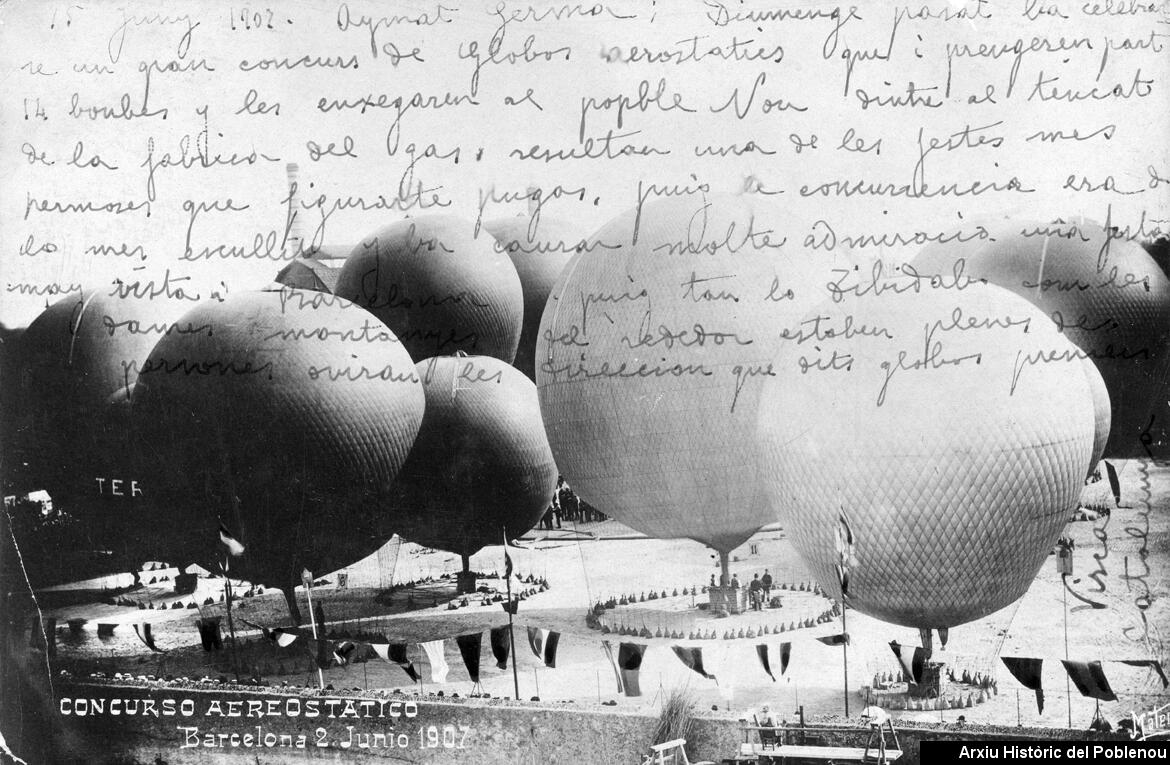 15 Juny 1907. Aymat Germa; Diumenge pasat ba celebra
re un gran concurs de Globos aerostatics que i prengeren part
14 bonbes y les enxegaren al popble Nou dintre al tencat
de la fabrica del gas, resultan una de les festes mes
permoses que figurarte pugas, puig la concurrencia era de
lo mes escullit y ba causar molte admiració una festa
may vista a Barcelona puig tan lo Tibidabo com les
dames montanyes del rededor estaben plenes de
persones oviran les direccion que dits globos prenien
Visca
Catalunya
TER
CONCURSO AEREOSTÁTICO
Barcelona 2. Junio 1907
Arxiu Històric del Poblenou